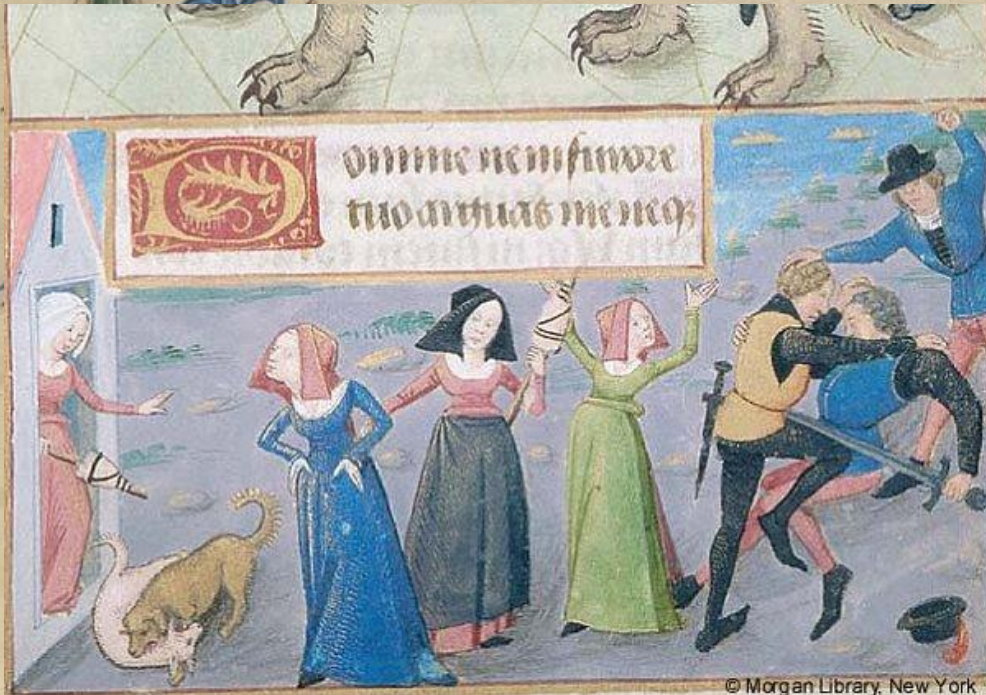 Domine ne in furore
tuo arguas me neq3
© Morgan Library, New York